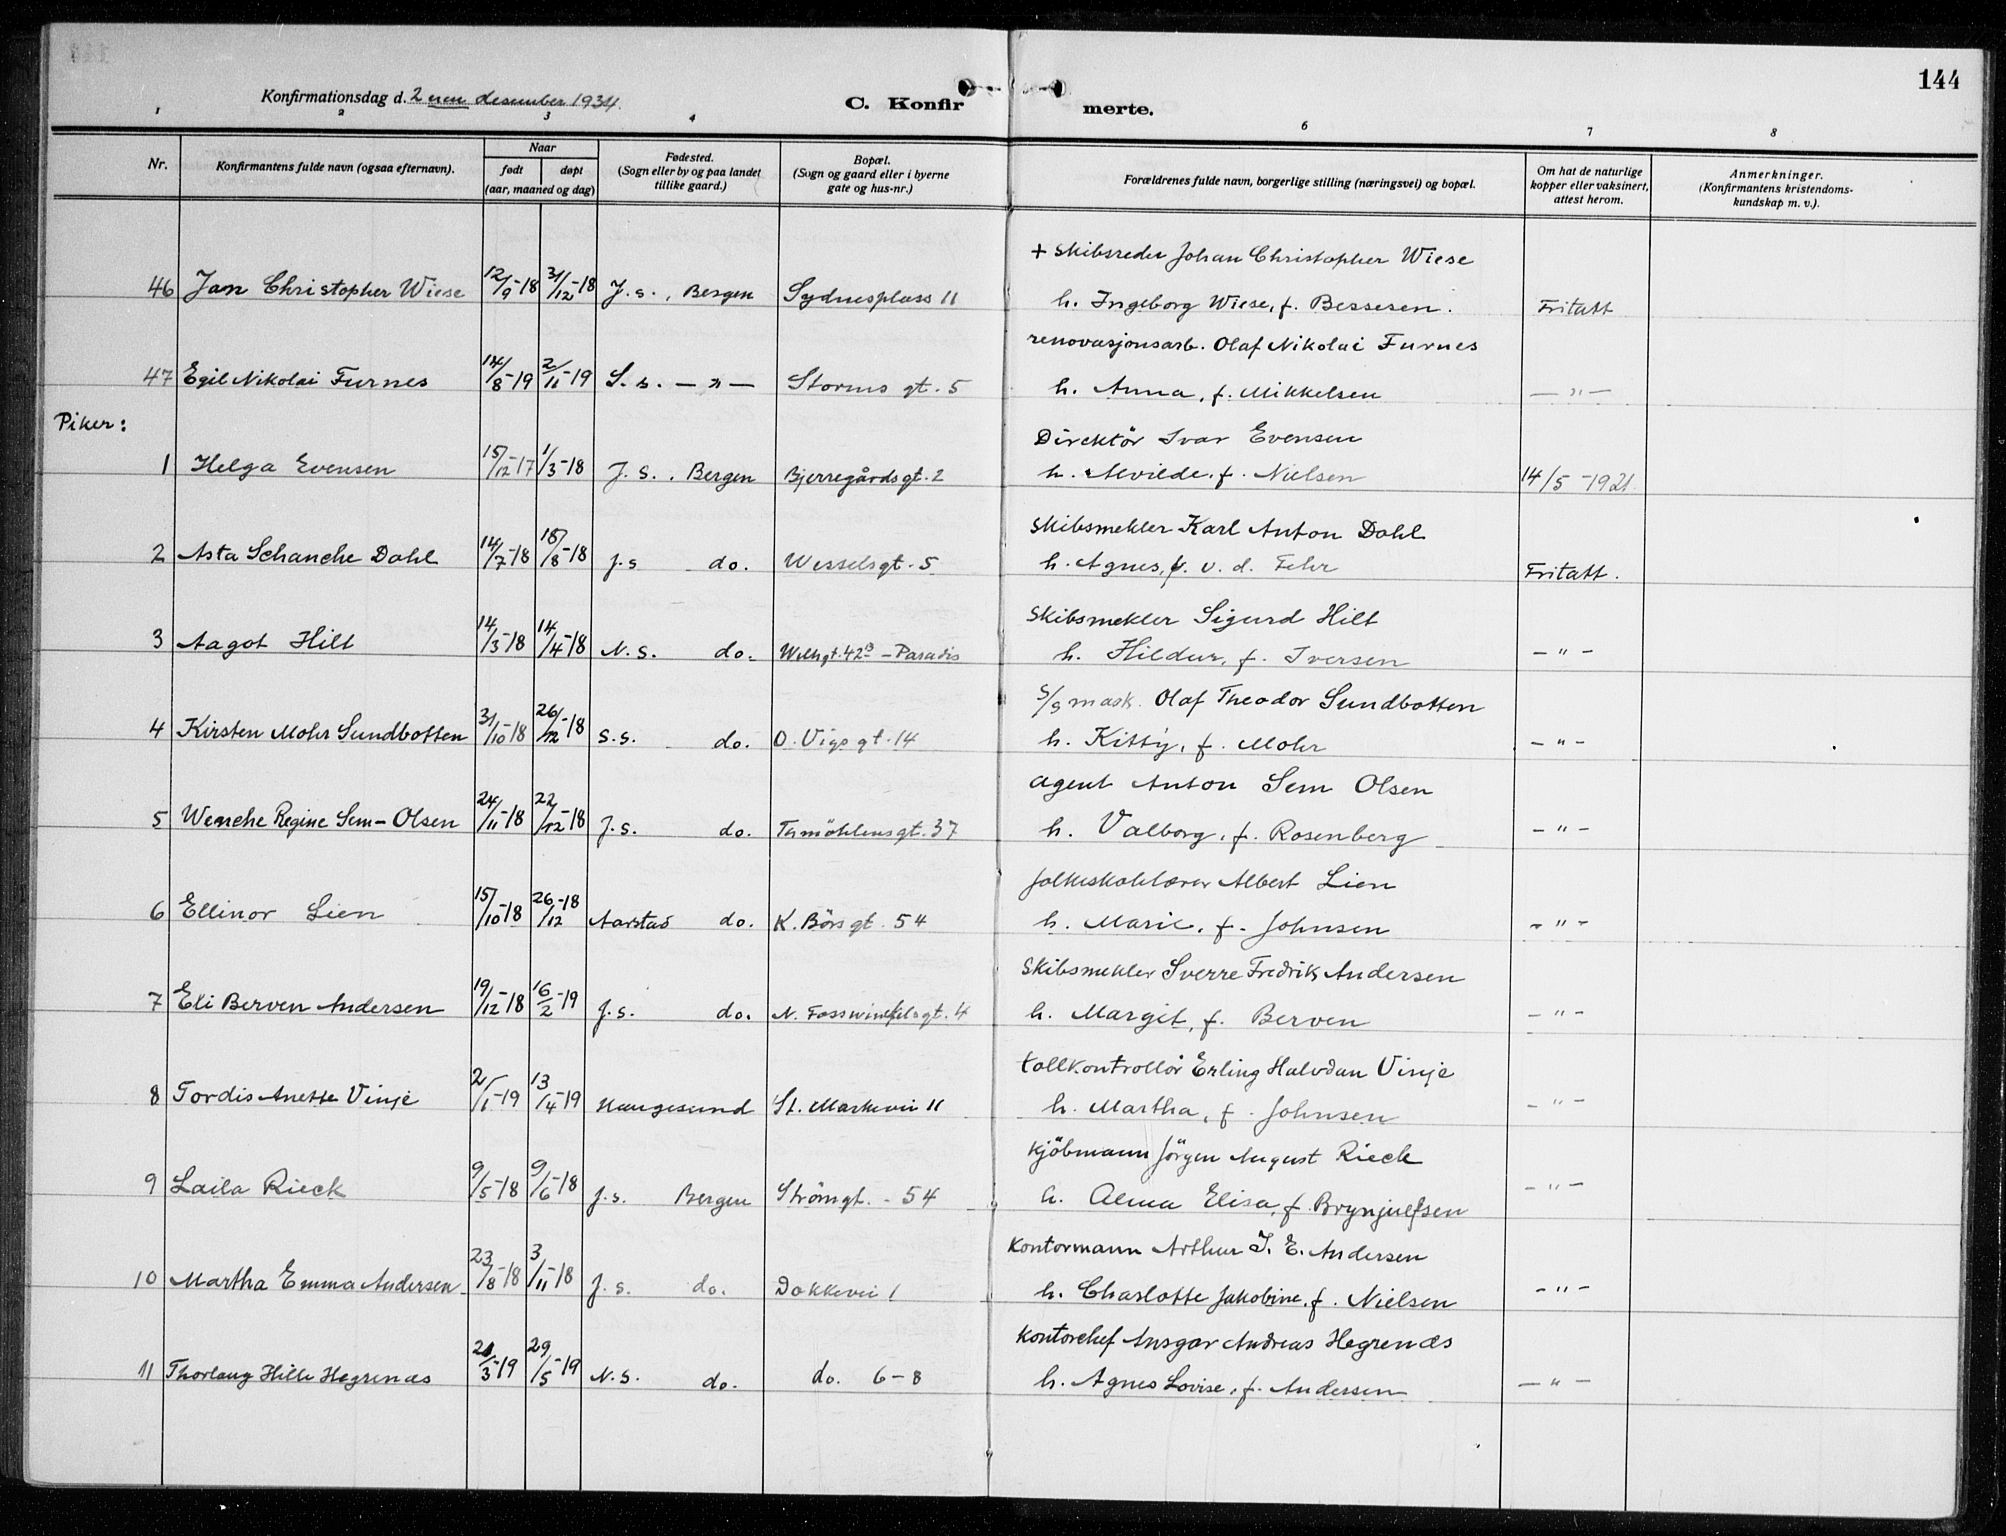 144
Konfirmationsdag d. 2nen desember 1934.
C. Konfirmerte.
1 2 3 4 6 7 8
Nr.
Konfirmantens fulde navn (ogsaa efternavn).
Naar
født
døpt
(aar, maaned og dag)
Fødested.
(Sogn eller by og paa landet
tillike gaard.)
Bopæl.
(Sogn og gaard eller i byerne
gate og hus-nr.)
Forældrenes fulde navn, borgerlige stilling (næringsvei) og bopæl.
Om hat de naturlige
kopper eller vaksinert,
attest herom.
Anmerkninger.
(Konfirmantens kristendoms-
kundskap m. v.).
+ Skibsreder Johan Christopher Wiese
46 Jan Christopher Wiese 12/9-18 31/12-18 J. s., Bergen Sydnesplass 11 h. Ingeborg Wiese, f. Bessesen. Fritatt
renovasjonsarb. Olaf Nikolai Furnes
47 Egil Nikolai Furnes 14/8-19 2/11-19 S. s. — " — Storms gt. 5 h. Anna, f. Mikkelsen — " —
Piker:
Direktör Ivar Evensen
1 Helga Evensen 15/12-17 1/3-18 J. S., Bergen Bjerregårdsgt. 2 h. Alvilde, f. Nielsen 14/5-1921.
Skibsmekler Karl Anton Dahl
2 Asta Schanche Dahl 14/7-18 18/8-18 J. s do. Wesselsgt. 5 h. Agnes, f. v. d. Fehr Fritatt.
Skibsmekler Sigurd Hilt
3 Aagot Hilt 14/3-18 14/4-18 N. S. do. 42B - Paradis h. Hildur, f. Iversen — " —
S/S mask. Olaf Theodor Sundbotten
4 Kirsten Mohr Sundbotten 31/10-18 26/12-18 S. S. do. O. Vigs gt. 14 h. Kitty, f. Mohr — " —
agent Anton Sem Olsen
5 Wenche Regine Sem-Olsen 24/11-18 22/12-18 J. S. do. Thmöhlensgt. 37 h. Valborg, f. Rosenberg — " —
folkeskolelærer Albert Lien
6 Ellinor Lien 15/10-18 26/12-18 Aarstad do. K. Börs gt. 54 h. Marie, f. Johnsen — " —
Skibsmekler Sverre Fredrik Andersen
7 Eli Berven Andersen 19/12-18 16/2-19 J. s. do. N. Fosswinkelsgt. 4 h. Margit, f. Berven — " —
tollkontrollör Erling Halvdan Vinje
8 Tordis Anette Vinje 2/1-19 13/4-19 Haugesund St. Markevei 11 h. Martha, f. Johnsen — " —
Kjöbmann Jörgen August Rieck
9 Laila Rieck 9/5-18 9/6-18 J. s. Bergen Strömgt. - 54 h. Alma Elisa, f. Brynjulfsen — " —
Kontormann Arthur J. E. Andersen
10 Martha Emma Andersen 23/8-18 3/11-18 J. s. do. Dokkevei 1 h. Charlotte Jakobine, f. Nielsen — " —
Kontorchef Ansgar Andreas Hegrenæs
11 Thorlaug Hille Hegrenæs 21/3-19 29/5-19 N. S. do. do. 6-8 h. Agnes Lovise, f. Andersen — " —